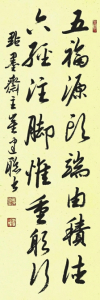 五福源頭端由積德
六經注脚惟重躬行
墨齋主